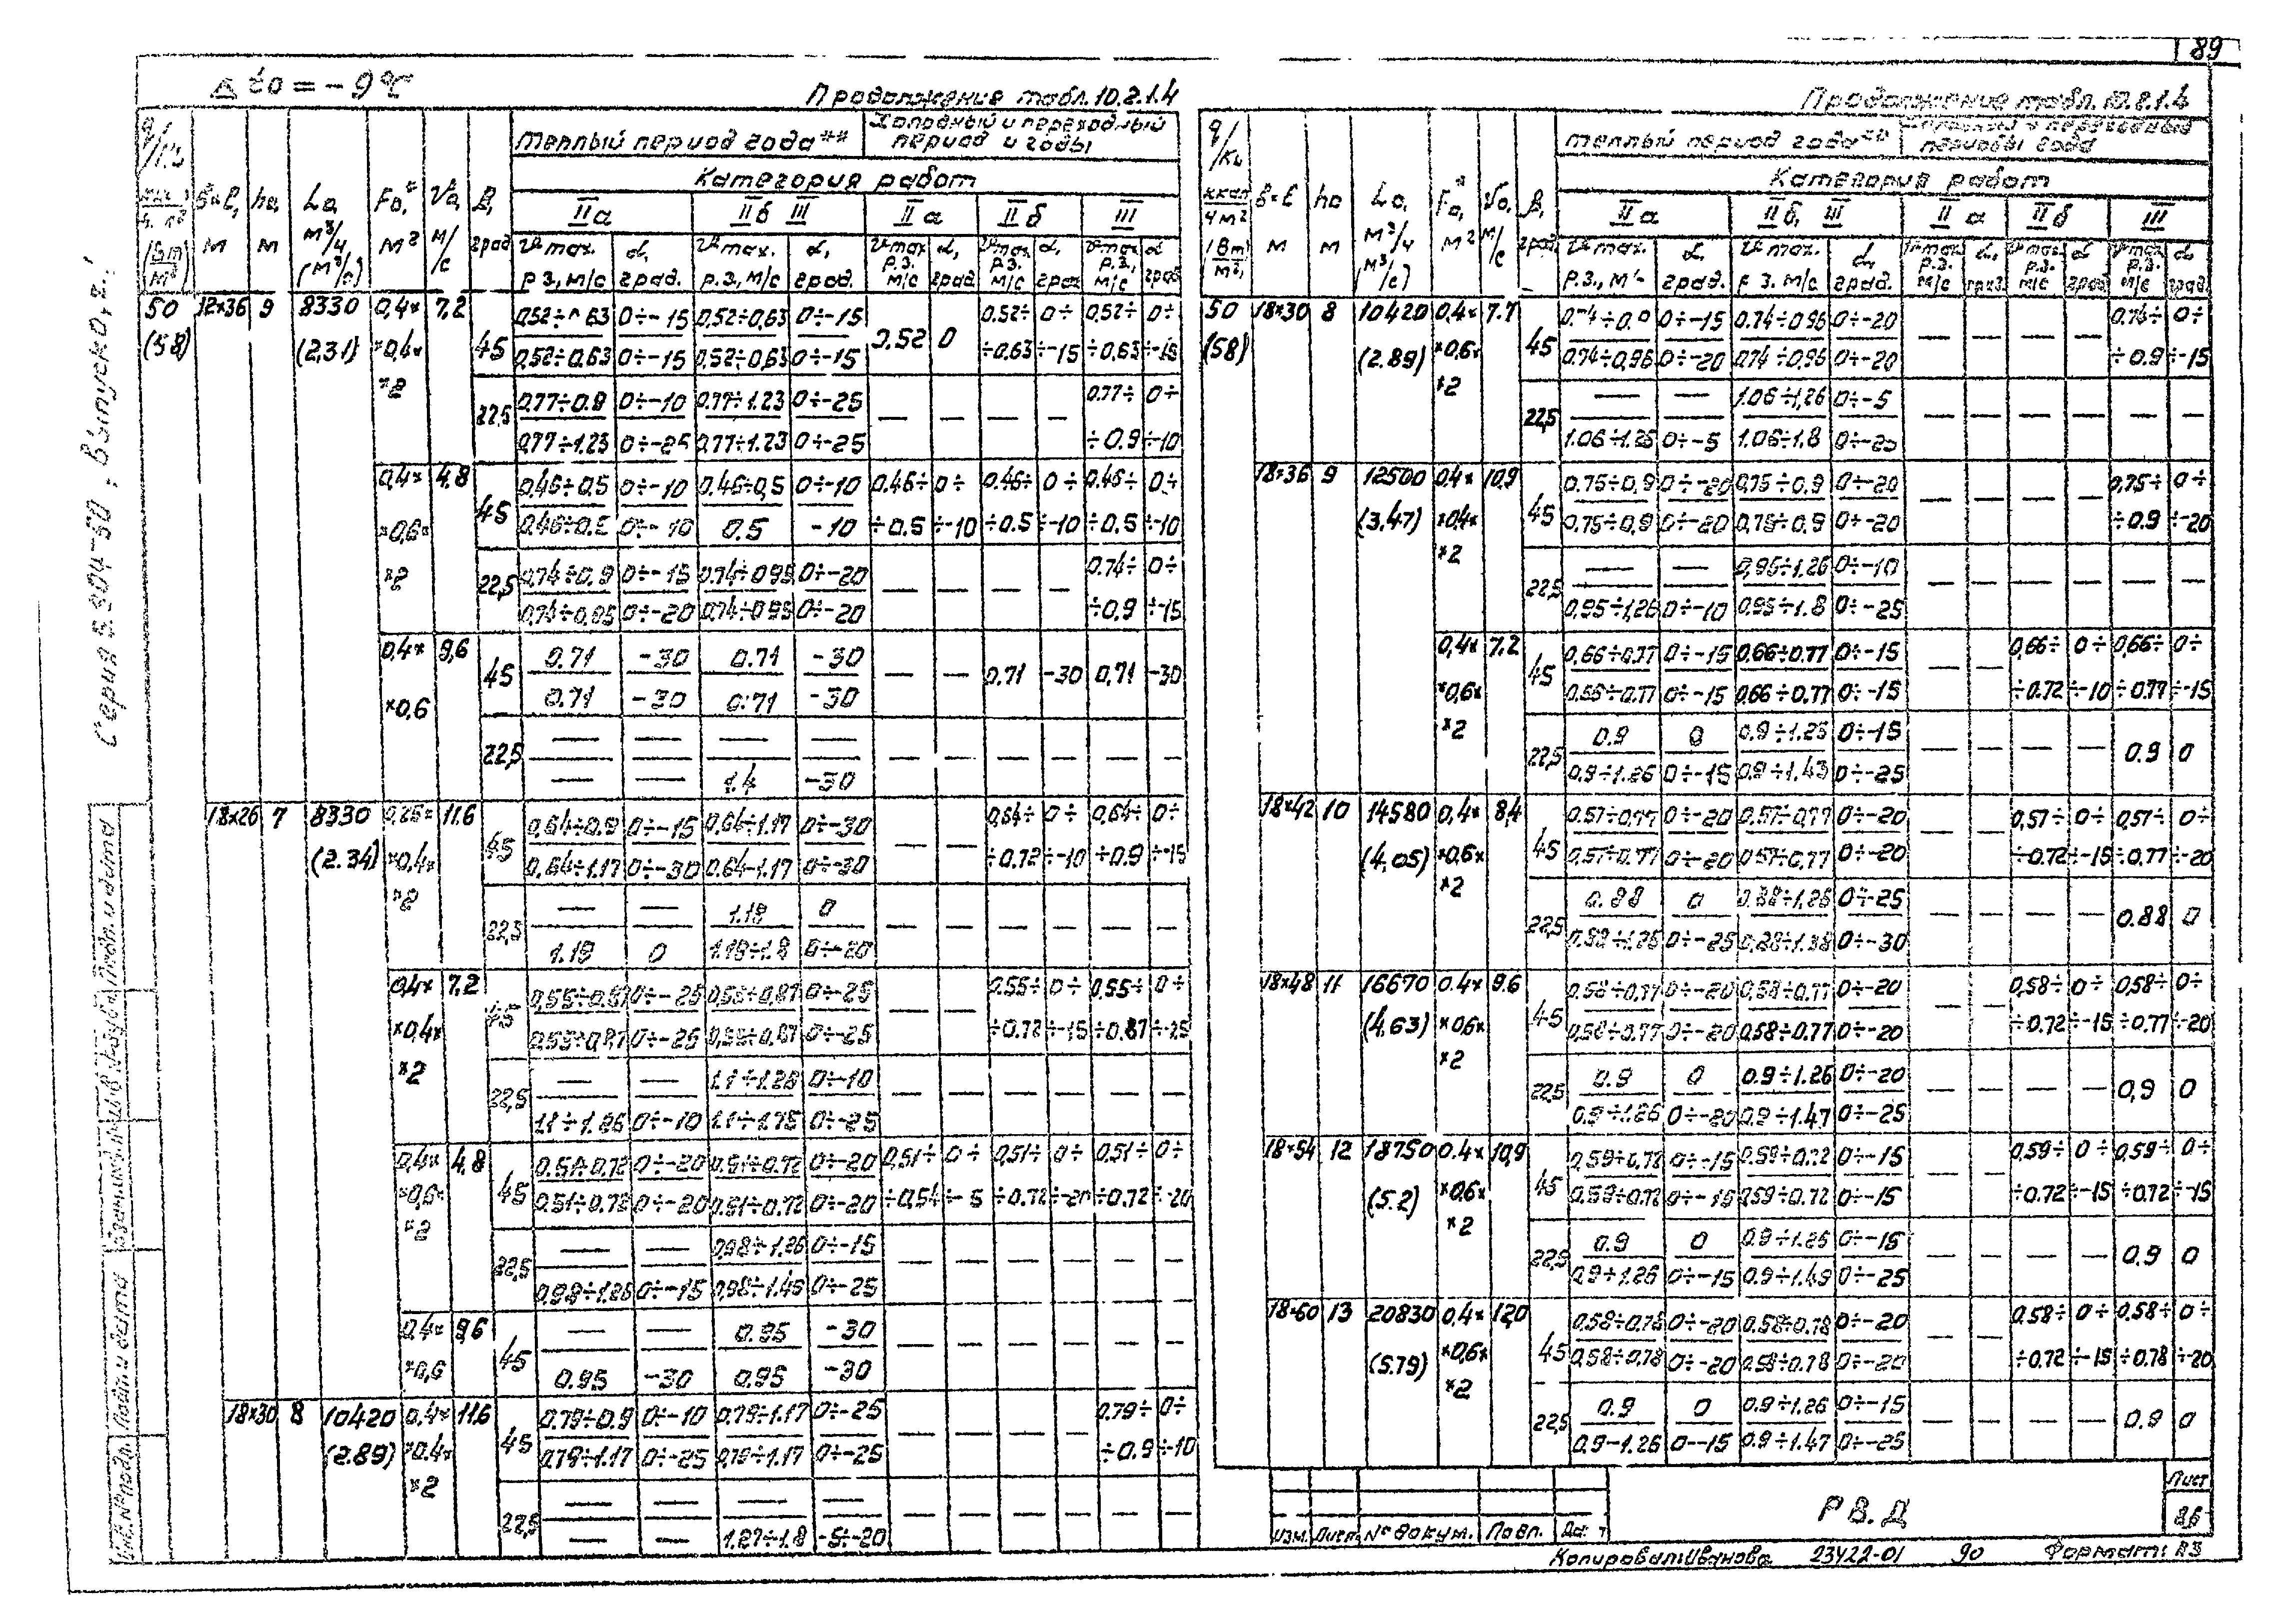 89
Δ to = - 9 °С
Продолжение табл. 10.2.1.4
Теплый период года**
Холодный и переходный период и годы
Категория работ
IIа IIб III IIа IIб III
50 12×36 9 8330 0,4× 7,2
(58) (2,31) ×0,4× ×2
45
0,52÷0,63 0÷-15 0,52÷0,63 0÷-15 0.52 0 0.52÷ 0÷ 0,52÷ 0÷
0,52÷0.63 0÷-15 0,52÷0,63 0÷-15 ÷0.63 ÷-15 ÷0,63 ÷-15
22,5
0.77÷0.9 0÷-10 0.77÷1.23 0÷-25 — — — — 0.77÷ 0÷
0,77÷1.23 0÷-25 0.77÷1.23 0÷-25 ÷0.9 ÷-10
0,4× 4,8
×0,6× ×2
45
0.46÷0,5 0÷-10 0.46÷0,5 0÷-10 0.46÷ 0÷ 0.46÷ 0÷ 0.46÷ 0÷
0.46÷0.5 0÷-10 0.5 -10 ÷0.5 ÷-10 ÷0.5 ÷-10 ÷0.5 ÷-10
22,5
0.74÷0.9 0÷-15 0.74÷0.95 0÷-20 — — — — 0.74÷ 0÷
0.74÷0.95 0÷-20 0.74÷0.95 0÷-20 ÷0.9 ÷-15
0,4× 9,6
×0,6
45
0.71 -30 0.71 -30 — — 0.71 -30 0,71 -30
0.71 -30 0.71 -30
22,5
— — — — — — — — — —
— — 1.4 -30
18×26 7 8330 11.6
(2.34) ×0,4× ×2
45
0,64÷0.9 0÷-15 0.64÷1.17 0÷-30 — — 0,64÷ 0÷ 0,64÷ 0÷
0,64÷1.17 0÷-30 0.64-1.17 0÷-30 ÷0.72 ÷-10 ÷0.9 ÷-15
22,5
— — 1.19 0 — — — — — —
1.19 0 1.19÷1.8 0÷-20
0,4× 7.2
×0,4× ×2
45
0,55÷0.87 0÷-25 0,55÷0,87 0÷-25 — — 0.55÷ 0÷ 0,55÷ 0÷
0.55÷0,87 0÷-25 0,55÷0,87 0÷-25 ÷0.72 ÷-15 ÷0.87 ÷-25
22,5
— — 1.1÷1.26 0÷-10 — — — — — —
1.1÷1.26 0÷-10 1.1÷1.75 0÷-25
0,4× 4,8
×0,6× ×2
45
0.51÷0.72 0÷-20 0.51÷0.72 0÷-20 0,51÷ 0÷ 0,51÷ 0÷ 0,51÷ 0÷
0.51÷0.72 0÷-20 0.51÷0.72 0÷-20 ÷0,54 ÷-5 ÷0.72 ÷-20 ÷0.72 ÷-20
22,5
— — 0,98÷1.26 0÷-15 — — — — — —
0,98÷1.26 0÷-15 0,98÷1.45 0÷-25
0,4× 9,6
×0,6
45
— — 0.95 -30
0.95 -30 0.95 -30
18×30 8 10420 0,4× 11.6
(2.89) ×0.4× ×2
45
0.79÷0.9 0÷-10 0.79÷1.17 0÷-25 — — — — 0.79÷ 0÷
0.79÷1.17 0÷-25 0,79÷1.17 0÷-25 ÷0.9 ÷-10
22,5
— — — — — — — — — —
— — 1.27÷1.8 -5÷-20
Продолжение табл. 10.2.1.4
Теплый период года**
периоды года
Категория работ
IIа IIб, III IIа IIб III
50 18×30 8 10420 0,4× 7.7
(58) (2.89) ×0,6× ×2
45
0÷-15 0.74÷0.96 0÷-20 — — — — 0.74÷ 0÷
0.74÷0,96 0÷-20 0.74÷0.96 0÷-20 ÷0.9 ÷-15
22,5
— — 1.06÷1,26 0÷-5 — — — — — —
1.06÷1.26 0÷-5 1.06÷1.8 0÷-20
18×36 9 12500 0,4× 10,9
(3.47) ×0,4× ×2
45
0.75÷0,9 0÷-20 0,75÷0.9 0÷-20 — — — — 0,75÷ 0÷
0.75÷0,9 0÷-20 0,75÷0,9 0÷-20 ÷0.9 ÷-20
22,5
— — 0,95÷1.26 0÷-10 — — — — — —
0,95÷1,26 0÷-10 0.95÷1.8 0÷-25
0,4× 7,2
×0,6× ×2
45
0,66÷0.77 0÷-15 0,66÷0.77 0÷-15 — — 0,66÷ 0÷ 0,66÷ 0÷
0.66÷0.77 0÷-15 0.66÷0.77 0÷-15 ÷0.72 ÷-10 ÷0.77 ÷-15
22,5
0.9 0 0.9÷1.26 0÷-15 — — — — 0.9 0
0.9÷1.26 0÷-15 0.9÷1.43 0÷-25
18×42 10 14580 0,4× 8,4
(4,05) ×0,6× ×2
45
0.57÷0.77 0÷-20 0.57÷0.77 0÷-20 — — 0,57÷ 0÷ 0,57÷ 0÷
0,57÷0.77 0÷-20 0,57÷0,77 0÷-20 ÷0.72 ÷-15 ÷0.77 ÷-20
22,5
0.88 0 0.88÷1.26 0÷-25 — — — — 0.88 0
0.88÷1.26 0÷-25 0,88÷1.38 0÷-30
18×48 11 16670 0.4× 9.6
(4.63) ×0,6× ×2
45
0.58÷0.77 0÷-20 0,58÷0.77 0÷-20 — — 0,58÷ 0÷ 0,58÷ 0÷
0,58÷0.77 0÷-20 0.58÷0.77 0÷-20 ÷0.72 ÷-15 ÷0.77 ÷-20
22,5
0.9 0 0.9÷1.26 0÷-20 — — — — 0,9 0
0.9÷1.26 0÷-20 0.9÷1.47 0÷-25
18×54 12 18750 0.4× 10,9
(5.2) ×0,6× ×2
45
0,59÷0,72 0÷-15 0.59÷0.72 0÷-15 — — 0,59÷ 0÷ 0,59÷ 0÷
0,59÷0.72 0÷-15 0,59÷0.72 0÷-15 ÷0.72 ÷-15 ÷0.72 ÷-15
22,5
0.9 0 0.9÷1.26 0÷-15 — — — — 0.9 0
0.9÷1.26 0÷-15 0.9÷1.49 0÷-25
18×60 13 20830 0,4× 12,0
(5.79) ×0,6× ×2
45
0.58÷0.78 0÷-20 0.58÷0.78 0÷-20 — — 0.58÷ 0÷ 0,58÷ 0÷
0,58÷0,78 0÷-20 0.58÷0.78 0÷-20 ÷0.72 ÷-15 ÷0.78 ÷-20
22,5
0.9 0 0.9÷1.26 0÷-15 — — — — 0.9 0
0.9-1.26 0--15 0.9÷1.47 0÷-25
РВ.Д
Лист
86
Изм. Лист № докум. Подп.
Копировал: Иванова 23422-01 90 Формат: А3